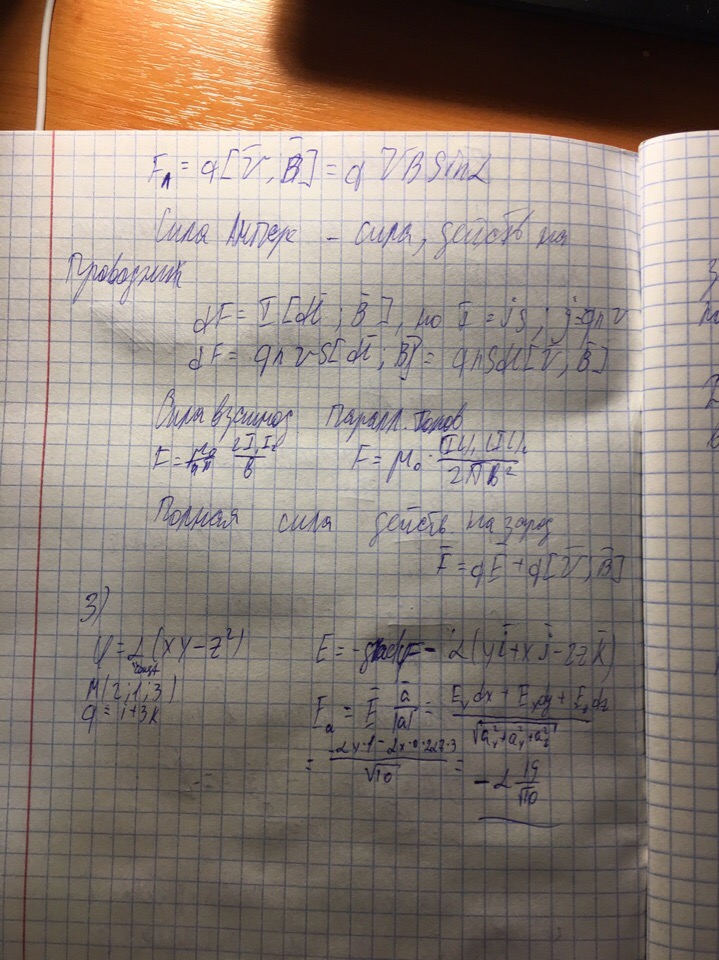 Fл = q[v̄, B̄] = q VB Sin α
Сила Ампере – сила, действ на
Проводник
dF = I[dl̄; B̄], но I = jS; j=qnv
dF = qnvS[dl̄; B̄] = qnSdl[v̄, B̄]
Сила взаимод Паралл. токов
F = μ₀/4π 2I₁I₂/в F = μ₀ · (Il)₁(Il)₂/2πв²
Полная сила действ. на заряд
F̄ = qĒ + q[V̄, B̄]
3)
φ = α(xy – z²) E = -gradφ = - α(yī + xj̄ - 2zk̄)
const
M(2; 1; 3)
a = i + 3k
Eₐ = Ē ā/|a| =
= -αy·1 - αx·0 + 2αz·3 / √10 =
- α 19/√10